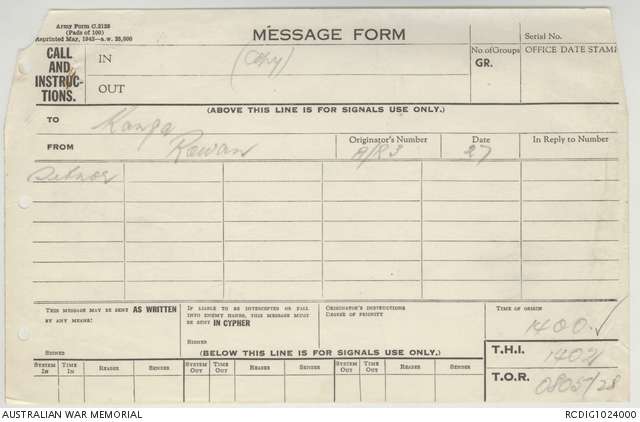 Army Form C.2128
(Pads of 100)
Reprinted May, 1942—A.W. 25,000
MESSAGE FORM
Serial No.
CALL
AND
INSTRUC-
TIONS.
IN
(Copy)
OUT
No. of Groups
GR.
OFFICE DATE STAMP
(ABOVE THIS LINE IS FOR SIGNALS USE ONLY.)
TO Kanga
FROM Rowan
Originator's Number
A/R3
Date
27
In Reply to Number
THIS MESSAGE MAY BE SENT AS WRITTEN
BY ANY MEANS:
SIGNED
IF LIABLE TO BE INTERCEPTED OR FALL
INTO ENEMY HANDS, THIS MESSAGE MUST
BE SENT IN CYPHER
SIGNED
ORIGINATOR'S INSTRUCTIONS
DEGREE OF PRIORITY
TIME OF ORIGIN
1400
(BELOW THIS LINE IS FOR SIGNALS USE ONLY.)
T.H.I. 1402
T.O.R. 0805/28
SYSTEM IN TIME IN READER SENDER SYSTEM OUT TIME OUT READER SENDER SYSTEM OUT TIME OUT READER SENDER
AUSTRALIAN WAR MEMORIAL
RCDIG1024000